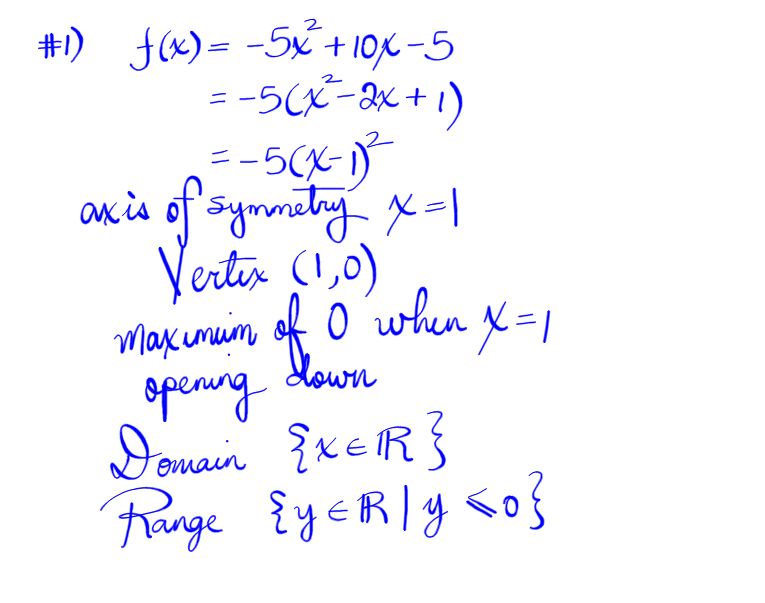 #1) f(x) = -5x² + 10x - 5
= -5(x² - 2x + 1)
= -5(x-1)²
axis of symmetry x = 1
Vertex (1,0)
maximum of 0 when x = 1
opening down
Domain {x ∈ ℝ}
Range {y ∈ ℝ | y ⩽ 0}